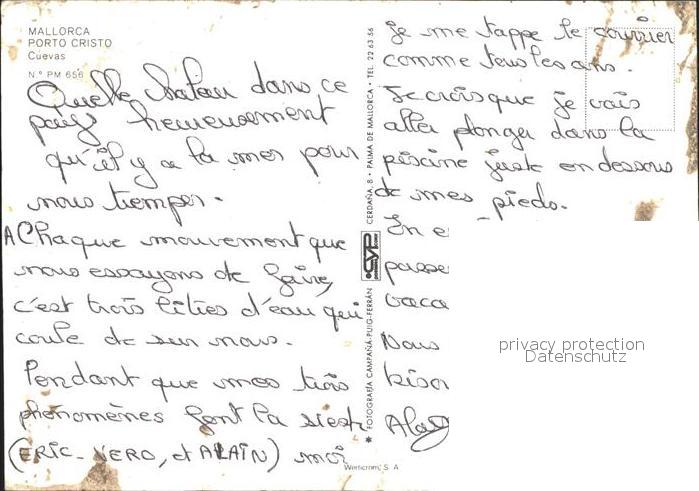 MALLORCA
PORTO CRISTO
Cuevas
N.º PM 656
Quelle chaleur dans ce
pays heureusement
qu'il y a la mer pour
nous tremper.
A Chaque mouvement que
nous essayons de faire,
c'est trois litres d'eau qui
coule de sur nous.
Pendant que mes trois
phénomènes font la sieste
(ERIC-VERO, et ALAIN) moi
FOTOGRAFÍA CAMPAÑÁ-PUIG-FERRÁN
CYP
CERDAÑA, 8 • PALMA DE MALLORCA • TEL. 22 63 56
je me tappe le courrier
comme tous les ans.
Je crois que je vais
aller plonger dans la
piscine juste en dessous
de mes pieds.
In e
passe
vaca
Nous
biso
privacy protection
Datenschutz